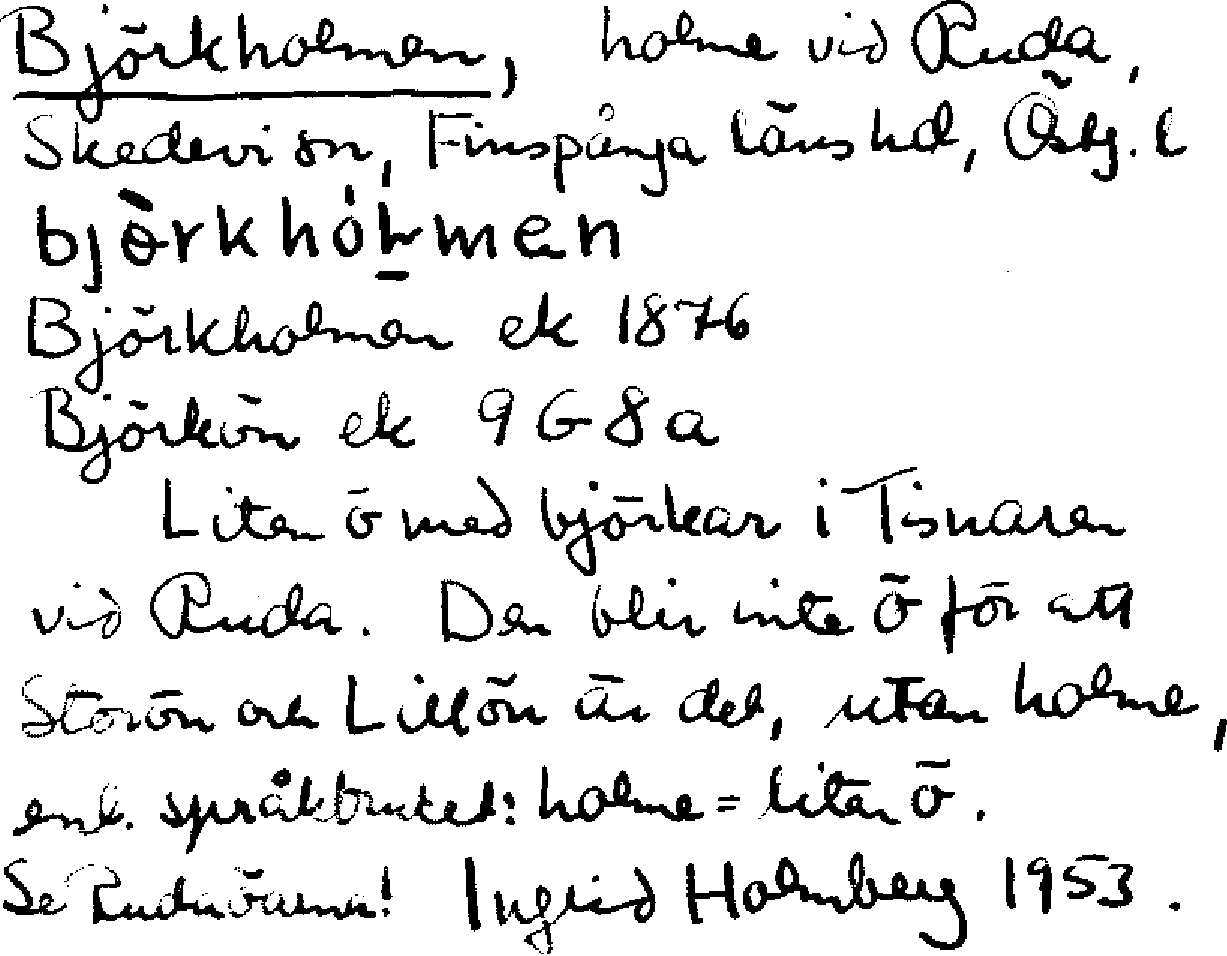 Björkholmen, holme vid Ruda,
Skedevi sn, Finspånga länshd, Östg. l
bjòrkhólmen
Björkholmen ek 1876
Björkön ek 9G8a
Liten ö med björkar i Tisnaren
vid Ruda. Den blir inte ö för att
Storön och Lillön är det, utan holme,
enl. språkbruket: holme = liten ö.
Se Rudaöarna! Ingrid Holmberg 1953.